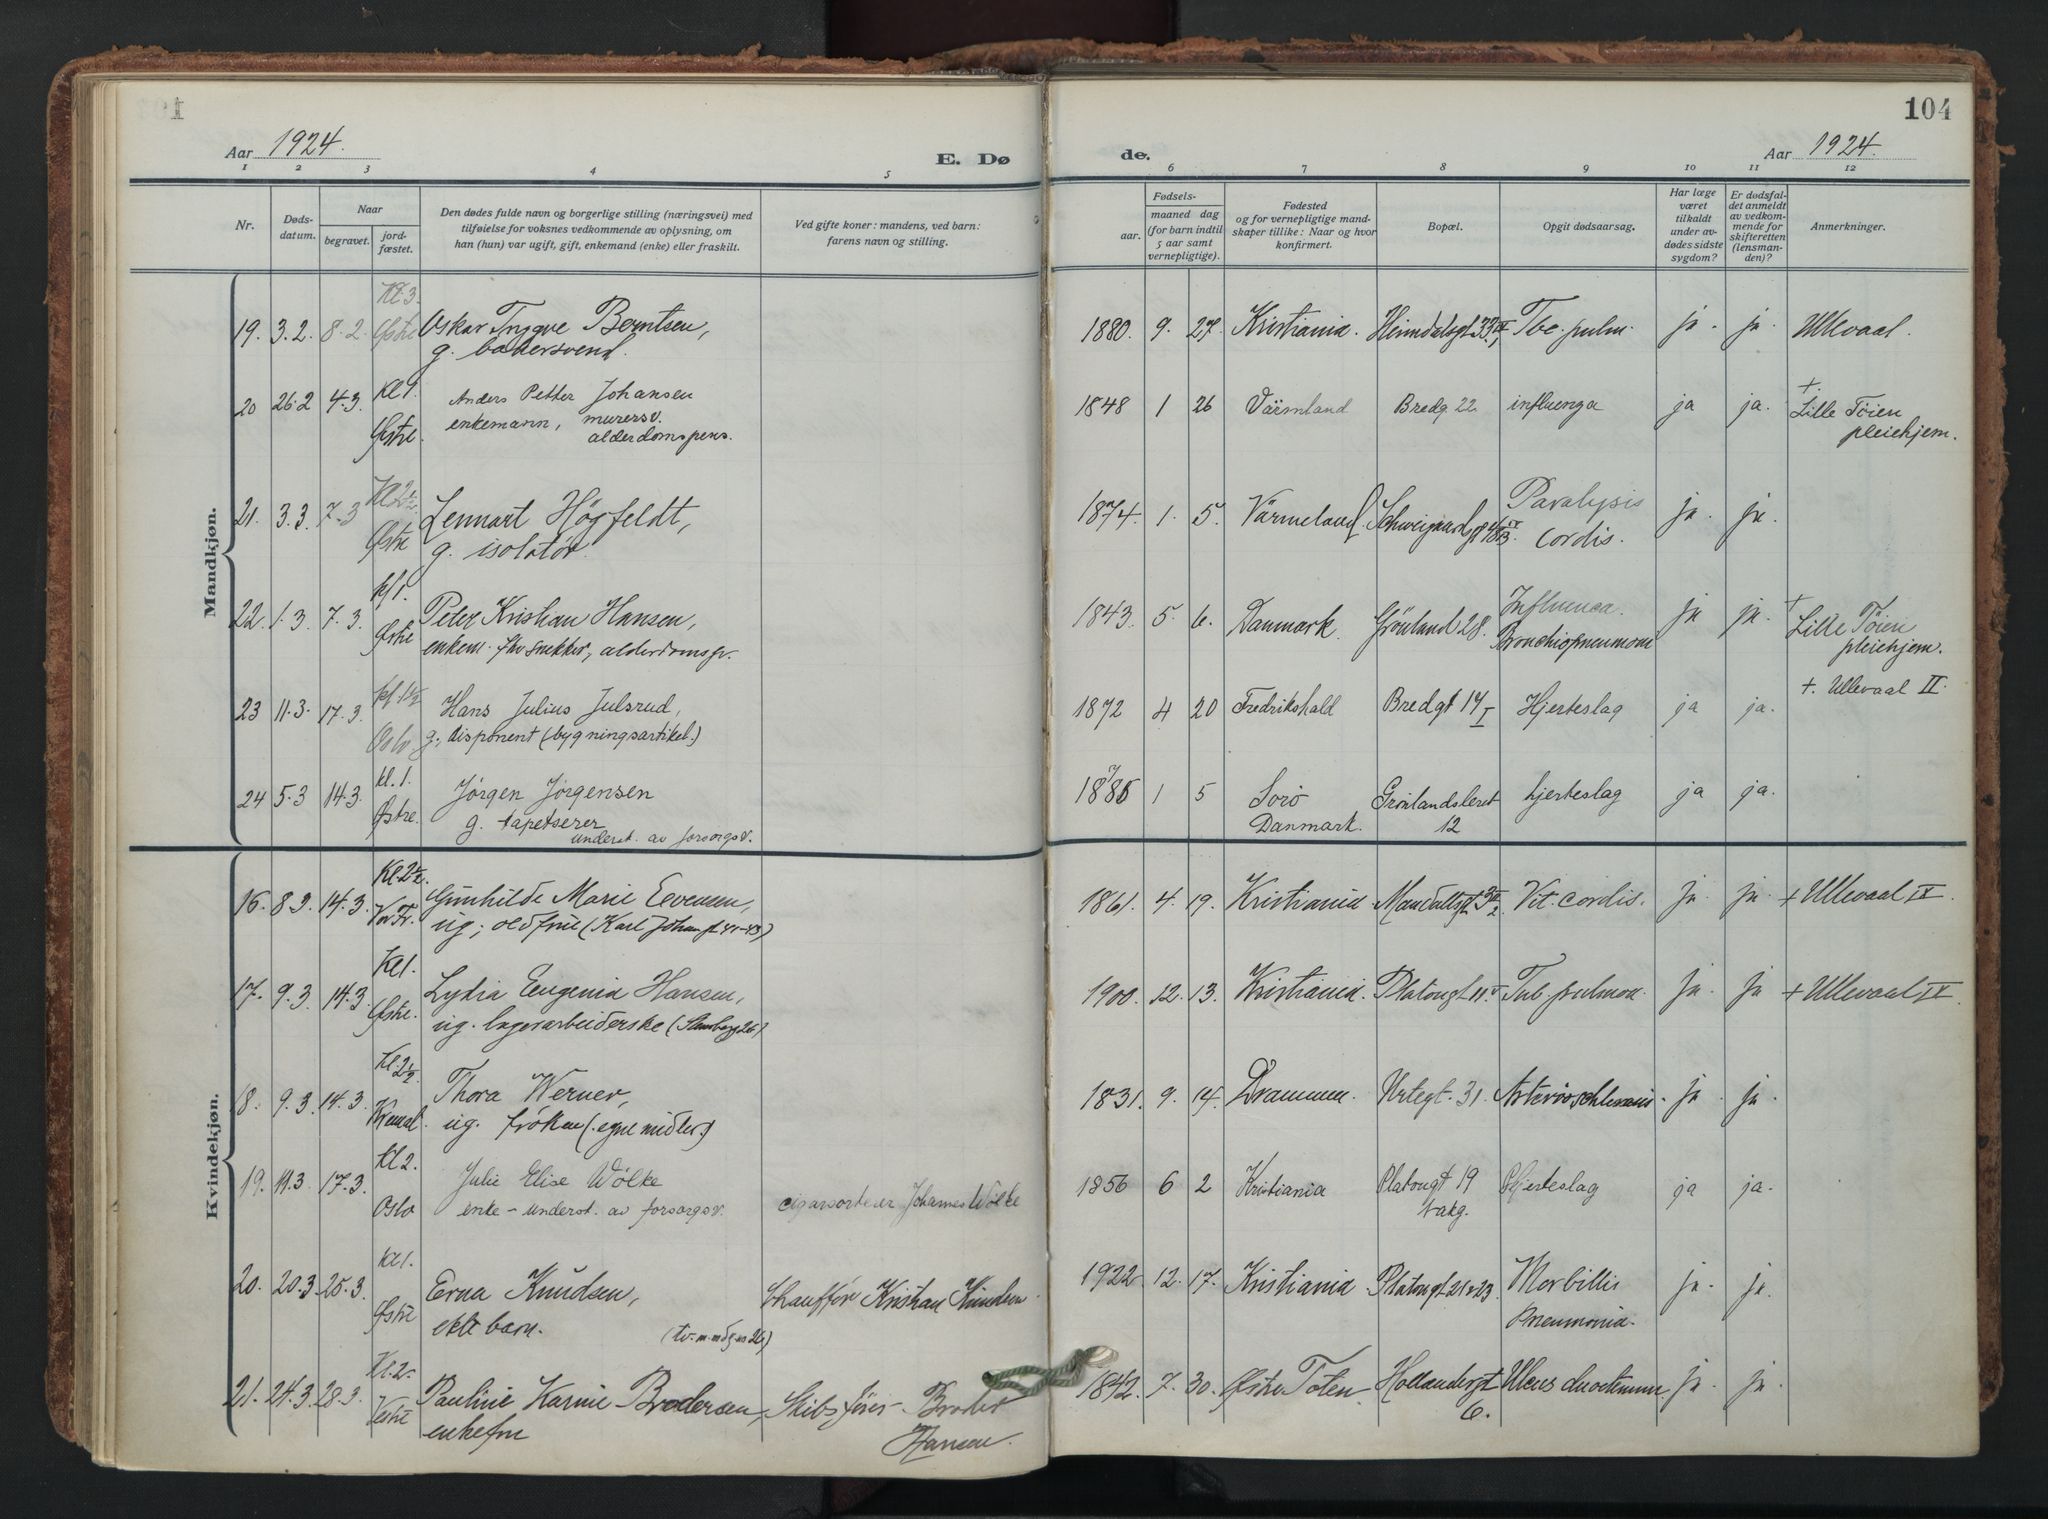 104
Aar 1924.
E. Dø
de.
Aar 1924.
1 2 3 4 5 6 7 8 9 10 11 12
Nr.
Døds-
datum.
Naar
begravet.
jord-
fæstet.
Den dødes fulde navn og borgerlige stilling (næringsvei) med
tilføielse for voksnes vedkommende av oplysning, om
han (hun) var ugift, gift, enkemand (enke) eller fraskilt.
Ved gifte koner: mandens, ved barn:
farens navn og stilling.
Fødsels-
aar.
maaned dag
(for barn indtil
5 aar samt
vernepligtige).
Fødested
og for vernepligtige mand-
skaper tillike: Naar og hvor
konfirmert.
Bopæl.
Opgit dødsaarsag.
Har læge
været
tilkaldt
under av-
dødes sidste
sygdom?
Er dødsfal-
det anmeldt
av vedkom-
mende for
skifteretten
(lensman-
den)?
Anmerkninger.
Mandkjøn.
Kl 3.
19. 3.2. 8.2. Østre Oskar Tryggve Berntsen, 1880. 9. 27. Kristiania. Heimdalsgt 33 IV, Tbc. pulm. ja. ja. Ullevaal.
g. bakersvend.
Kl 1.
20 26.2 4.3. Østre. Anders Petter Johansen 1848 1 26 Värmland Bredg. 22 influenza ja ja. + Lille Töien
enkemann, murersv. pleiehjem.
alderdomspens.
Kl 2½.
21. 3.3. 7.3 Østre Lennart Högfeldt, 1874. 1. 5. Värmeland. Schweigaardsgt Paralysis ja. ja.
g. isolatör. cordis.
Kl 1.
22. 1.3. 7.3. Østre Peter Kristian Hansen, 1843. 5. 6. Danmark. Grönland 28. Influenca. ja ja. + Lille Töien
enkem. fhv snekker, alderdomsp. Bronchiopneumoni pleiehjem.
kl. 1½
23 11.3. 17.3. Oslo Hans Julius Julsrud, 1872 4 20 Fredrikshald Bredgt 14 I Hjerteslag ja ja. +. Ullevaal II.
g., disponent (bygningsartikel.)
kl. 1.
24 5.3 14.3. Østre. Jörgen Jörgensen 1886 7 1 5 Sorö Grönlandsleret hjerteslag ja ja.
g. tapetserer Danmark. 12
underst. av forsorgsv.
Kvindekjøn.
Kl. 2½.
16. 8.3. 14.3. Vor Fr. Gunhilde Marie Evensen, 1861. 4. 19. Kristiania. Mandallsgt 3 Vit. cordis. ja. ja. + Ullevaal IV.
ug; oldfrue (Karl Johans gt 41-43)
Kl 1.
17. 9.3. 14.3. Østre. Lydia Eugenia Hansen, 1900. 12. 13. Kristiania. Platousgt 11 V Tub. pulmon. ja. ja + Ullevaal IV.
ug. lagerarbeiderske
Kl. 2½
18. 9.3. 14.3. Kremat. Thora Werner, 1831. 9. 14. Drammen. Urtegt. 31. Arterioschlerosis. ja. ja.
ug. fröken (. egne midler.)
Kl 2.
19. 11.3. 17.3. Oslo Julie Elise Wölke cigarsorterer Johannes Wölke 1856 6 2 Kristiania Platousgt 19 Hjerteslag ja ja.
enke - underst. av forsorgsv. bakg.
Kl 1.
20. 20.3. 25.3. Østre Erna Knudsen, Chaufför Kristian Knudsen. 1922 12. 17. Kristiania Platousgt. 21 & 23 Morbilli ja. ja.
ekte barn. Pneumonia.
Kl. 2.
21. 24.3. 28.3. Vestre Pauline Karine Brodersen, Skibsförer Broder 1842. 7. 30. Østre Toten. Hollendergt Ulcus duodenum ja. ja.
enkefru Hansen. 6.